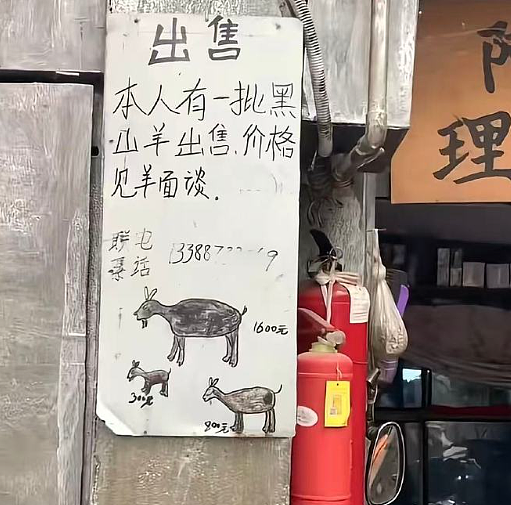 出售
本人有一批黑
山羊出售.价格
见羊面谈.
联系
电话
1600元
300元
900元
理